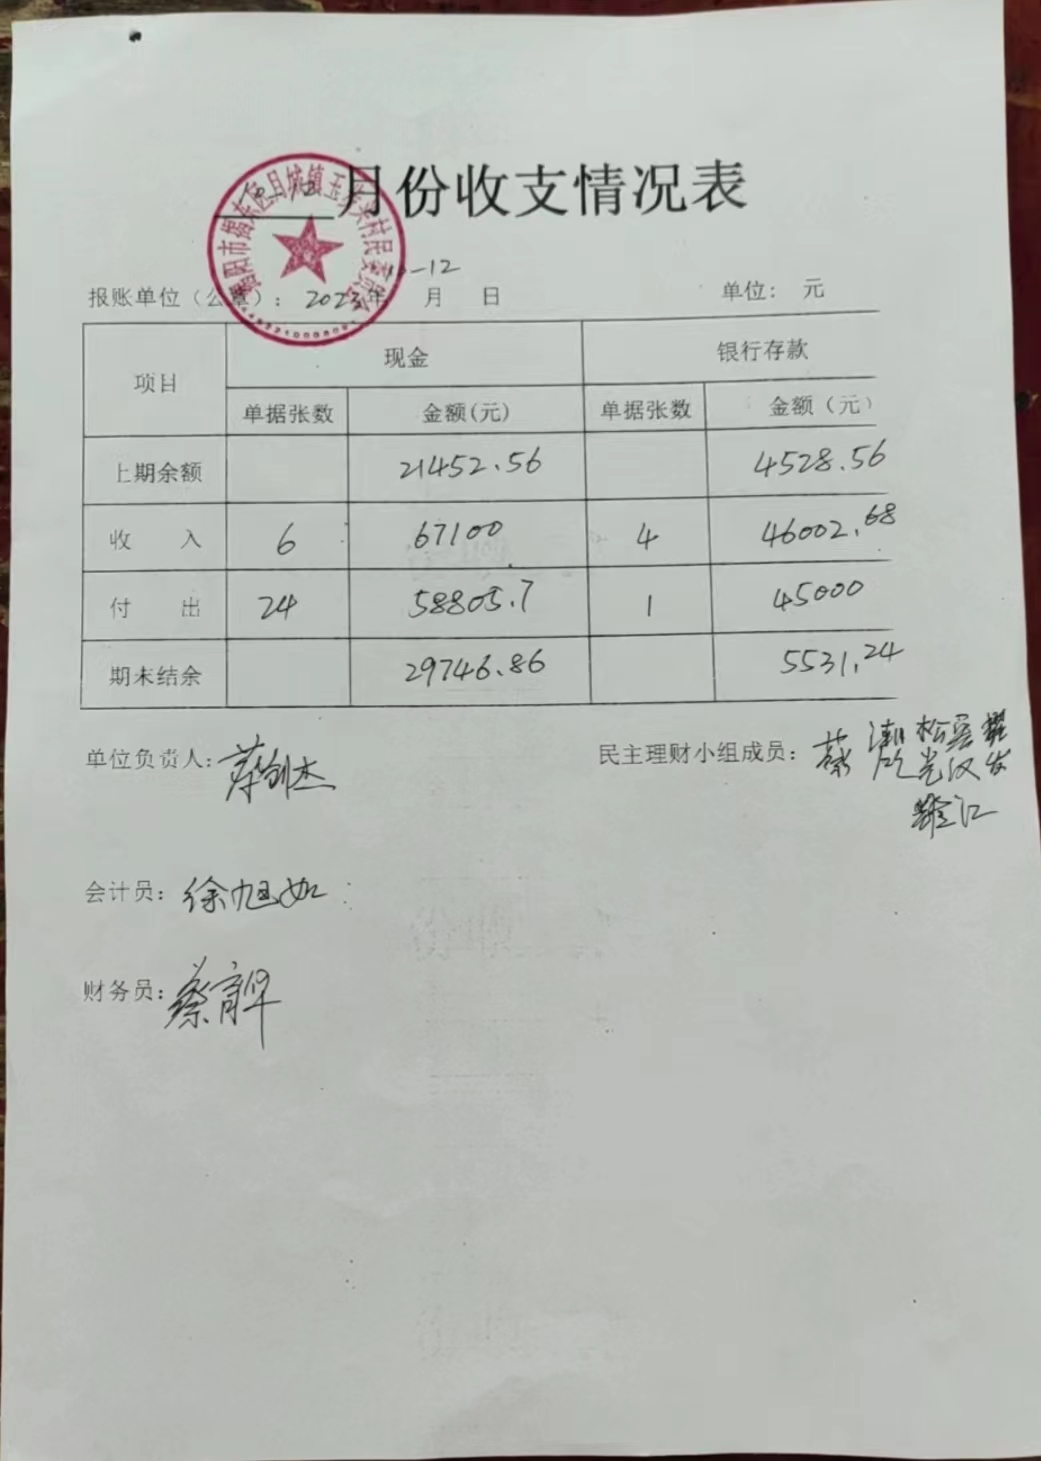 月份收支情况表
10-12
报账单位（公章）： 2023年 月 日 单位： 元
项目 现金 银行存款
单据张数 金额(元) 单据张数 金额（元）
上期余额 21452.56 4528.56
收 入 6 67100 4 46002.68
付 出 24 58805.7 1 45000
期末结余 29746.86 5531.24
单位负责人： 民主理财小组成员： 蔡
会计员： 徐旭如
财务员： 蔡